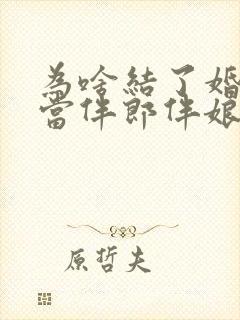 為啥結了婚
當伴郎伴娘
原哲夫